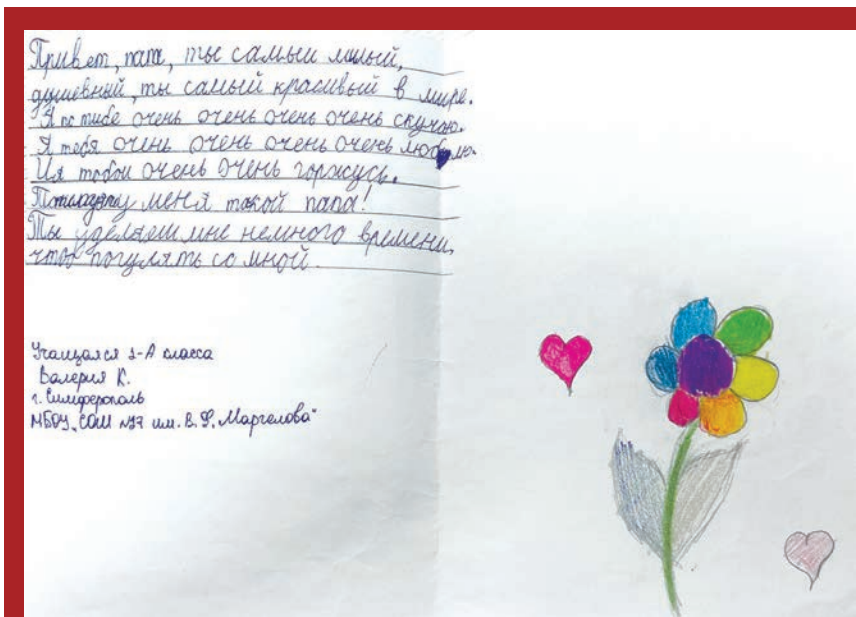 Привет, папа, ты самый милый,
душевный, ты самый красивый в мире.
Я по тибе очень очень очень очень скучаю.
Я тебя очень очень очень очень люблю.
И я тобой очень очень горжусь.
у меня такой папа!
Ты уделяеш мне немного времени,
чтоб погулять со мной.
Учащаяся 2-А класса
Валерия К.
г. Симферополь
МБОУ "СОШ им. В. Ф. Маргелова"